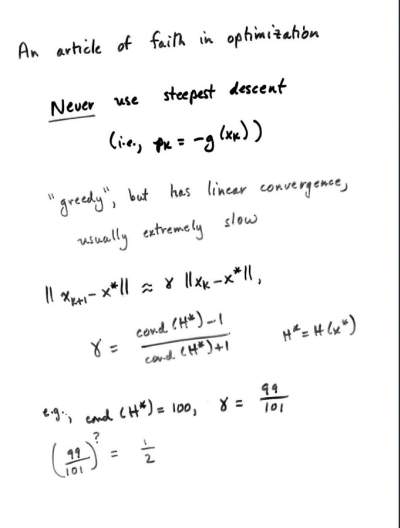 An article of faith in optimization
Never use steepest descent
(i.e., pₖ = -g(xₖ))
"greedy", but has linear convergence,
usually extremely slow
‖xₖ₊₁ - x*‖ ≈ γ ‖xₖ - x*‖,
γ = (cond(H*) - 1) / (cond(H*) + 1)    H* = H(x*)
e.g., cond(H*) = 100, γ = 99/101
(99/101)^? = 1/2